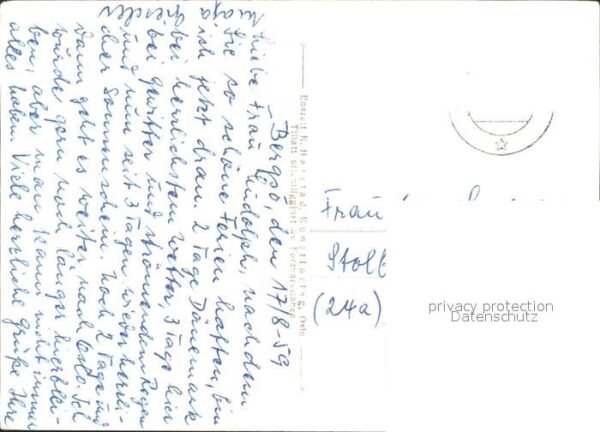 Bergsö, den 17/8.59
Liebe Frau Rudolph, nachdem
Sie so schöne Ferien hatten, bin
ich jetzt dran. 2 Tage Dänemark
bei herrlichstem Wetter, 3 Tage hier
bei Gewitter und strömendem Regen
und nun seit 3 Tagen wieder herrli-
cher Sonnenschein. Noch 2 Tage und
dann geht es weiter nach Oslo. Ich
würde gern noch länger hierblei-
ben, aber man kann nicht immer
alles haben. Viele herzliche Grüße Ihre
Enerett K. Harstad, Kunstforlag, Oslo
Frau
Stolb
(24a)
privacy protection
Datenschutz